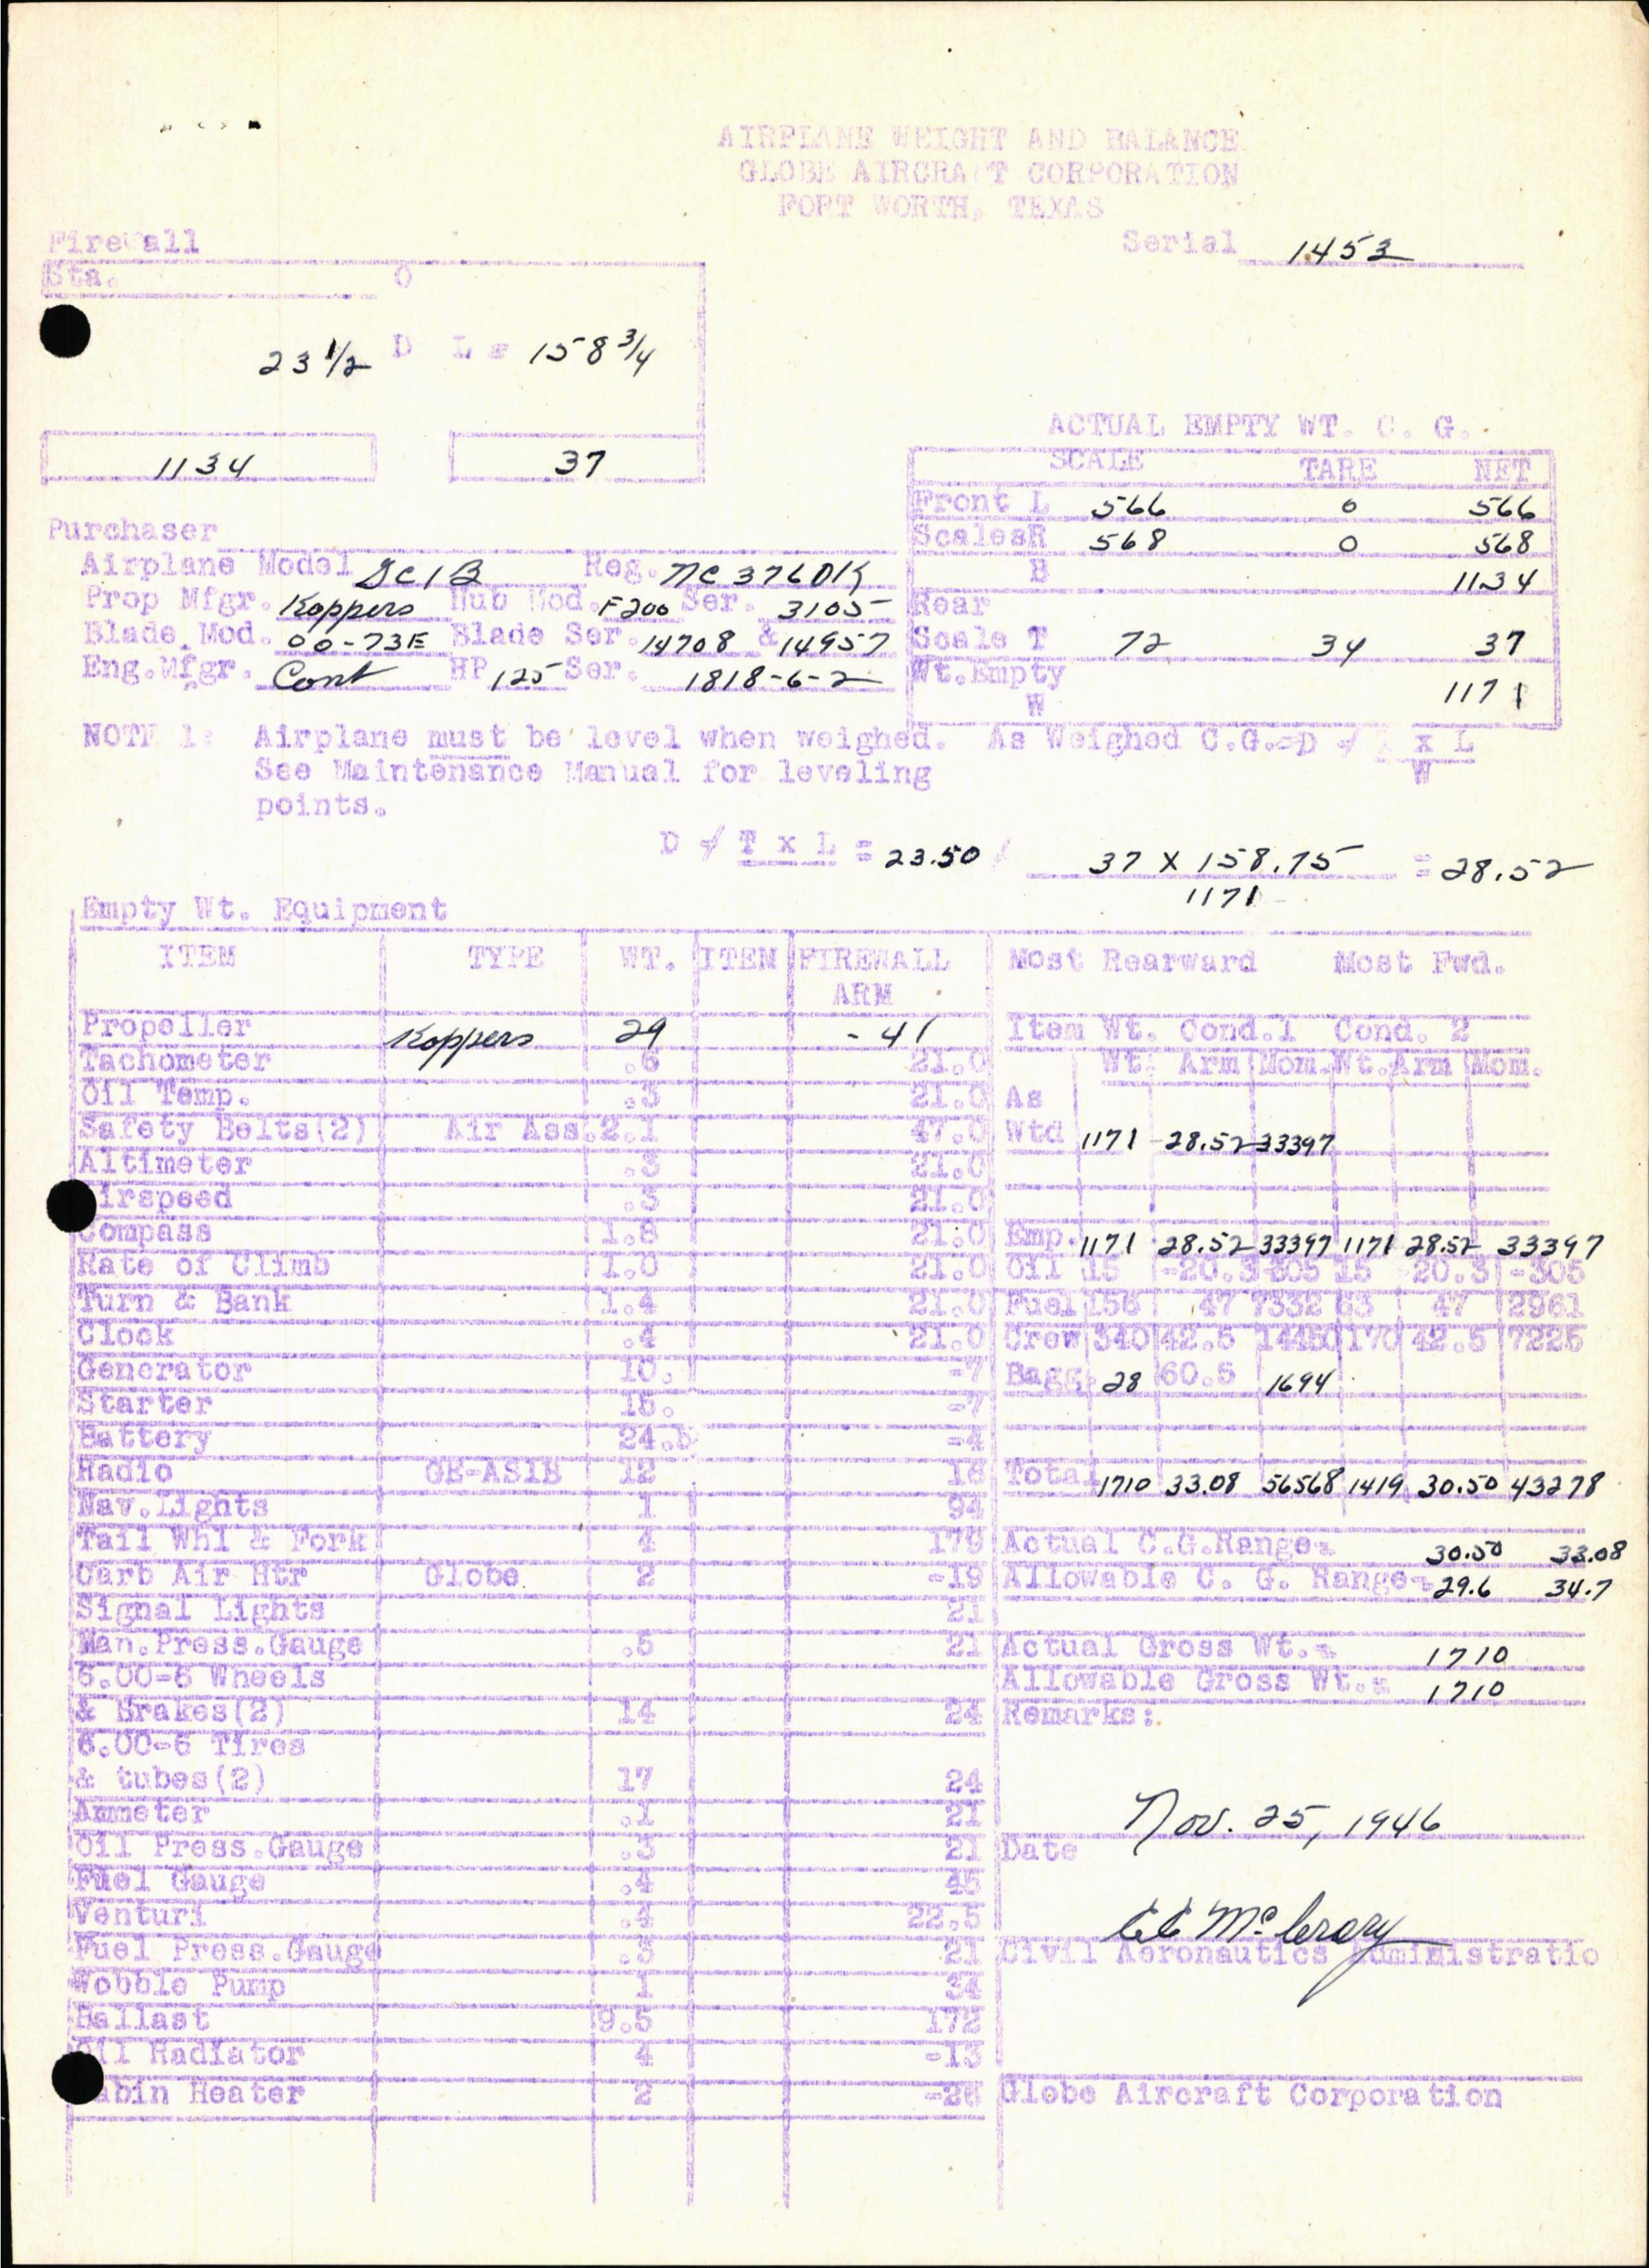 AIRPLANE WEIGHT AND BALANCE
GLOBE AIRCRAFT CORPORATION
FORT WORTH, TEXAS
Firewall
Serial 1453
Sta. 0
23 1/2 D L = 158 3/4
ACTUAL EMPTY WT. C. G.
1134 37
SCALE TARE NET
Front L 566 0 566
Scales R 568 0 568
B 1134
Rear
Scale T 72 34 37
Wt. Empty
W 1171
Purchaser
Airplane Model GC1B Reg. NC 3760K
Prop Mfgr. Koppers Hub Mod. F200 Ser. 3105
Blade Mod. 00-73E Blade Ser. 14708 & 14957
Eng. Mfgr. Cont HP 125 Ser. 1818-6-2
NOTE 1: Airplane must be level when weighed. As Weighed C.G.=D ≠ T x L
See Maintenance Manual for leveling W
points.
D ≠ T x L = 23.50 / 37 X 158.75 = 28.52
1171
Empty Wt. Equipment
ITEM TYPE WT. ITEM FIREWALL ARM
Propeller Koppers 29 -41
Tachometer .6 21.0
Oil Temp. .3 21.0
Safety Belts(2) Air Ass. 2.1 47.0
Altimeter .3 21.0
irspeed .3 21.0
Compass 1.8 21.0
Rate of Climb 1.0 21.0
Turn & Bank 1.4 21.0
Clock .4 21.0
Generator 10. -7
Starter 16. -7
Battery 24.5 -4
Radio GE-AS1B 12 16
Nav. Lights 1 94
Tail Whl & Fork 4 179
Carb Air Htr Globe 2 -19
Signal Lights 21
Man. Press. Gauge .5 21
6.00-6 Wheels
& Brakes(2) 14 24
6.00-6 Tires
& tubes(2) 17 24
Ammeter .1 21
Oil Press. Gauge .3 21
Fuel Gauge .4 45
Venturi .4 22.5
Fuel Press. Gauge .3 21
Wobble Pump 1 34
Ballast 9.5 172
Oil Radiator 4 -13
abin Heater 2 -26
Most Rearward Most Fwd.
Item Wt. Cond. 1 Cond. 2
Wt. Arm Mom. Wt. Arm Mom.
As
Wtd 1171 28.52 33397
Emp. 1171 28.52 33397 1171 28.52 33397
Oil 15 -20.3 -305 15 20.3 -305
Fuel 156 47 7332 63 47 2961
Crew 340 42.5 14450 170 42.5 7225
Bagg. 28 60.5 1694
Total 1710 33.08 56568 1419 30.50 43278
Actual C.G. Range= 30.50 33.08
Allowable C. G. Range= 29.6 34.7
Actual Gross Wt.= 1710
Allowable Gross Wt.= 1710
Remarks:
Nov. 25, 1946
Date
CC McCrary
Civil Aeronautics Administratio
Globe Aircraft Corporation